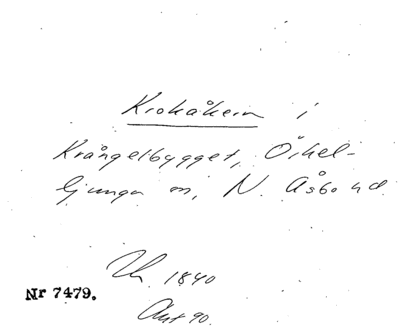 Krokåkern i
Krångelbygget, Örkel-
ljunga sn, N. Åsbo hd
1840
Nr 7479.
Akt 90.